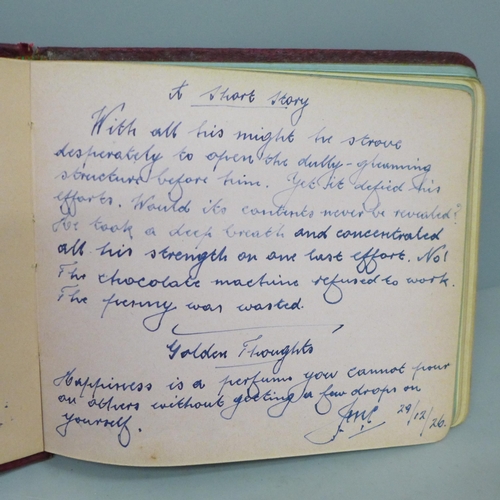 A Short Story
With all his might he strove
desperately to open the dully-gleaming
structure before him. Yet it defied his
efforts. Would its contents never be revealed?
He took a deep breath and concentrated
all his strength on one last effort. No!
The chocolate machine refused to work.
The penny was wasted.
Golden Thoughts
Happiness is a perfume you cannot pour
on others without getting a few drops on
yourself.
29/12/26.